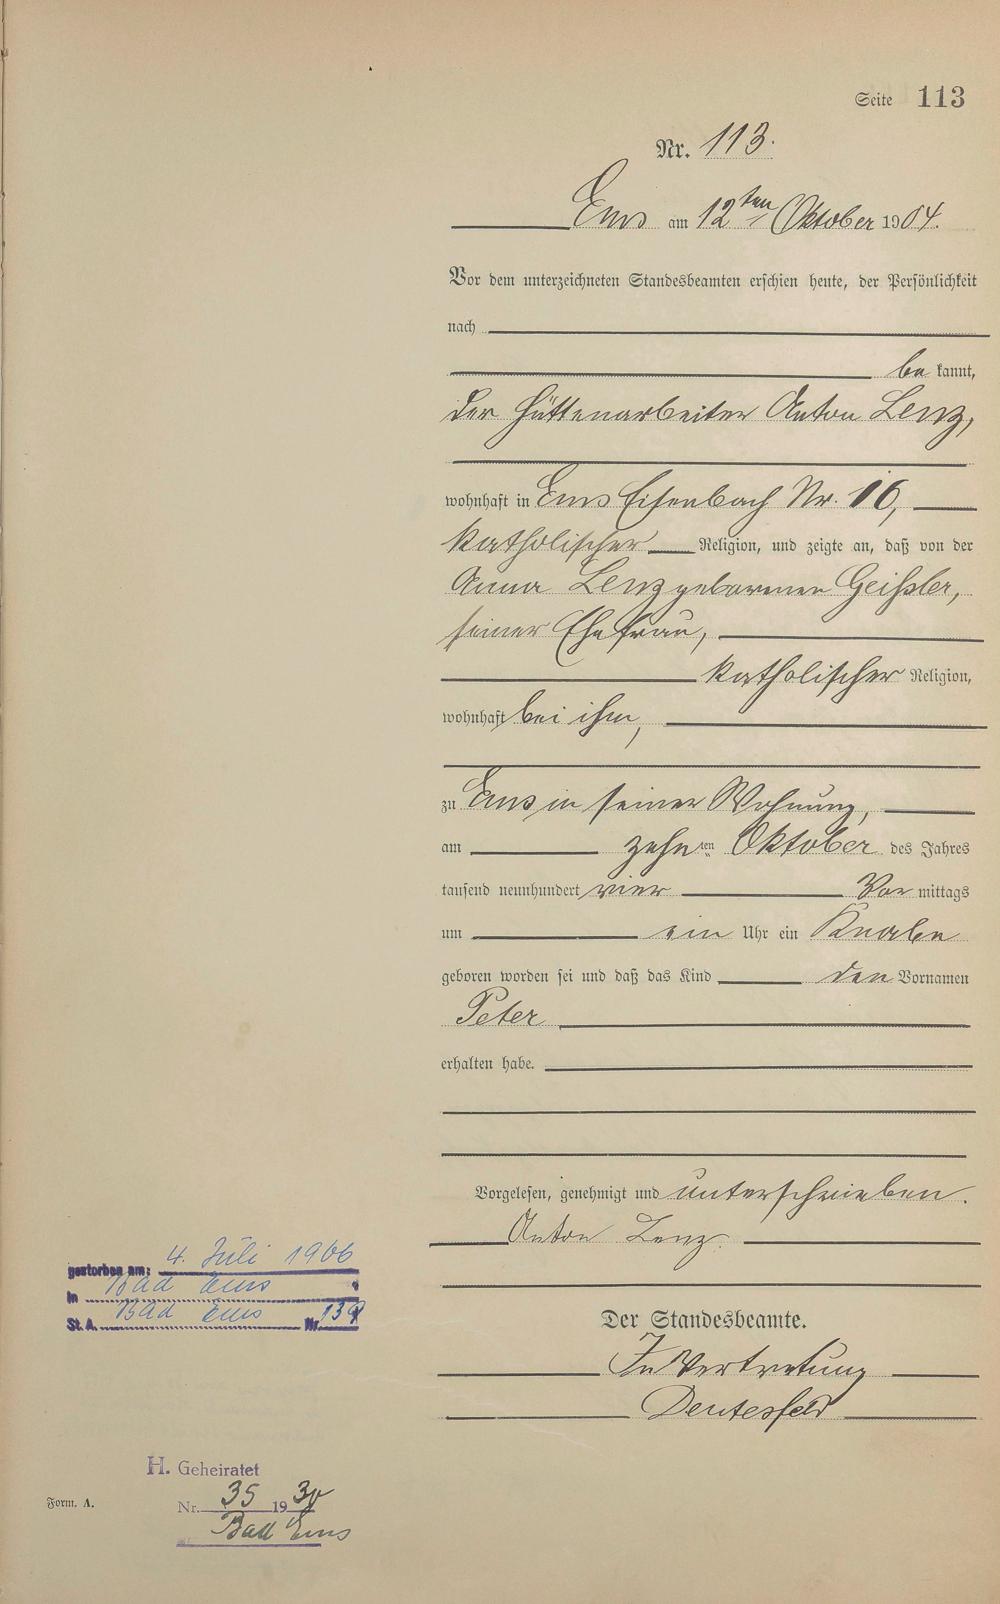 Seite 113
Nr. 113.
Ems am 12ten Oktober 1904.
Vor dem unterzeichneten Standesbeamten erschien heute, der Persönlichkeit
nach
be kannt,
der Hüttenarbeiter Anton Lenz,
wohnhaft in Ems Eisenbach Nr. 16,
katholischer Religion, und zeigte an, daß von der
Anna Lenz geborenen Geißler,
seiner Ehefrau,
katholischer Religion,
wohnhaft bei ihm,
zu Ems in seiner Wohnung,
am zehnten Oktober des Jahres
tausend neunhundert vier Vor mittags
um ein Uhr ein Knabe
geboren worden sei und daß das Kind den Vornamen
Peter
erhalten habe.
Vorgelesen, genehmigt und unterschrieben.
Anton Lenz.
Der Standesbeamte.
In Vertretung
gestorben am: 4. Juli 1966
in Bad Ems
St. A. Bad Ems Nr.
H. Geheiratet
Nr. 35 1930
Bad Ems
Form. A.